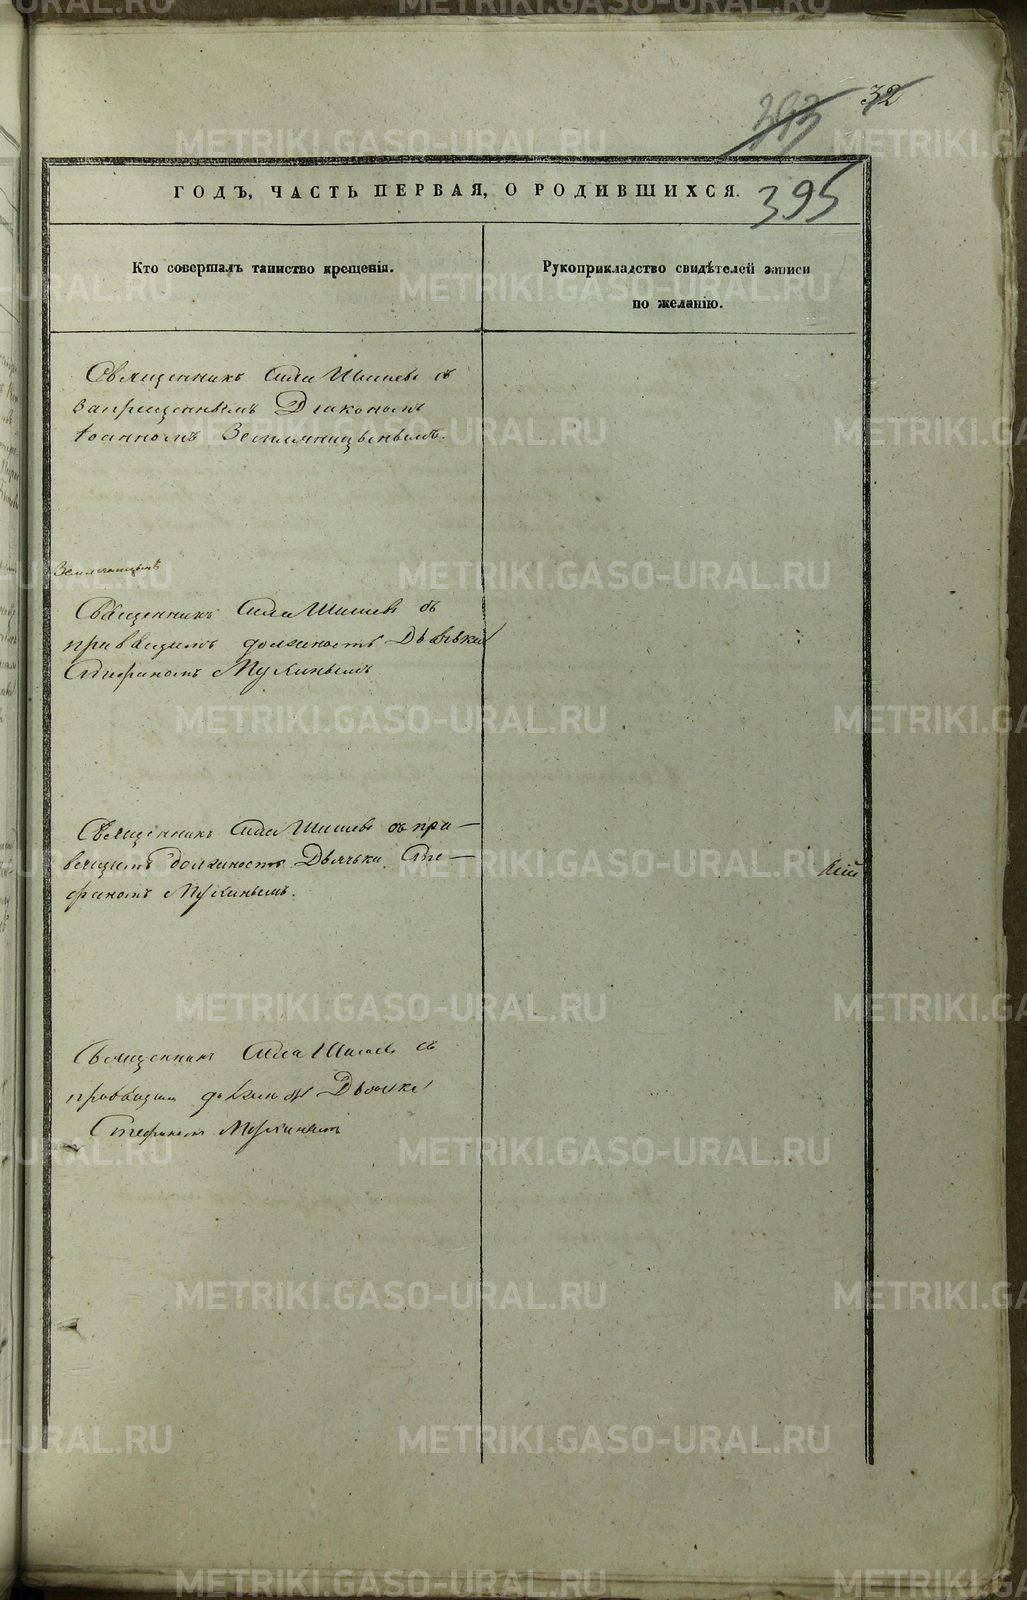 32
393
395
ГОДЪ, ЧАСТЬ ПЕРВАЯ, О РОДИВШИХСЯ.
Кто совершалъ таинство крещенія.
Рукоприкладство свидѣтелей записи
по желанію.
Священникъ Сила Шишевъ съ
запрещеннымъ Діакономъ
Іоанномъ Земляницынымъ.
Земляницынъ
Священникъ Сила Шишевъ съ
правящимъ должность Дьячка
Стефаномъ Мухинымъ
Священникъ Сила Шишевъ съ пра-
вящимъ должность Дьячька Сте-
фаномъ Мухинымъ.
кій
Священникъ Сила Шишевъ съ
правящим должность Дьячка
Стефаномъ Мухинымъ
METRIKI.GASO-URAL.RU